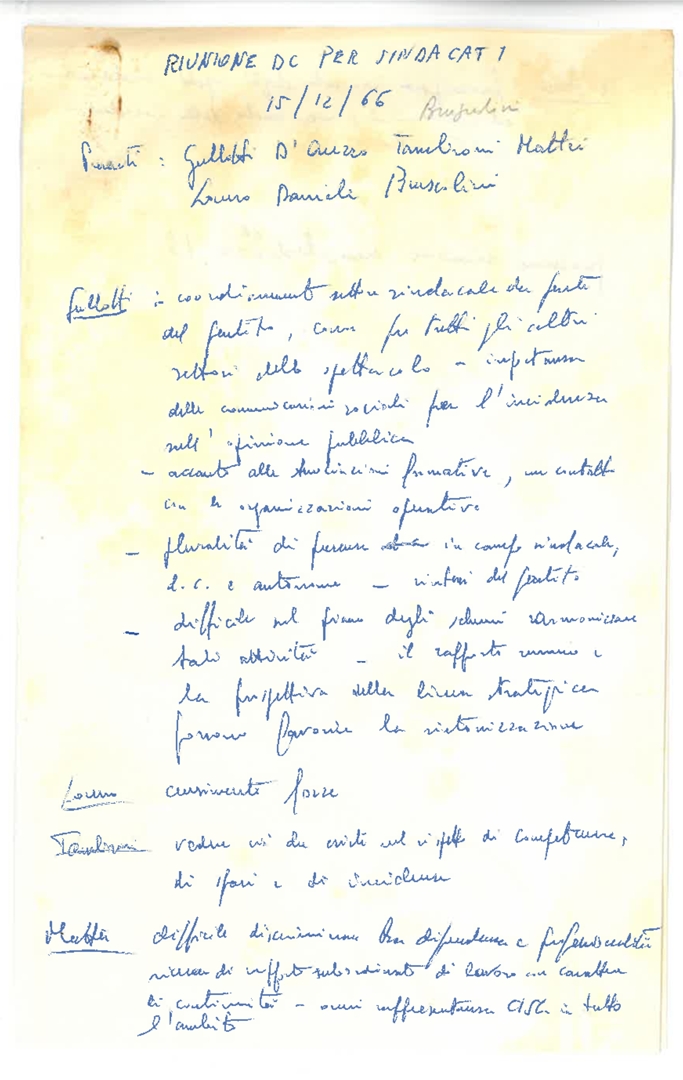 RIUNIONE DC PER SINDACATI
15/12/66
Presenti : Gullotti D'Arezzo Tambroni Mattei
Danieli Bruscolini
Gullotti : coordinamento settore sindacale da parte
del partito, come per tutti gli altri
settori dello spettacolo – importanza
delle comunicazioni sociali per l'incidenza
sull'opinione pubblica
– accanto alle associazioni formative, un contatto
con le organizzazioni operative
– pluralità di presenze in campo sindacale,
d.c. e autonome – sintesi del partito
– difficile sul piano degli schemi armonizzare
tali attività – il rapporto umano e
la prospettiva della linea strategica
possono favorire la sintonizzazione
censimento forze
Tambroni vedere ciò che esiste nel rispetto di competenze,
di sfere e di incidenze
Mattei difficile discriminare tra dipendenza e professionalità
di rapporto subordinato di lavoro con carattere
di continuità – rappresentanza CISL in tutto
l'ambito